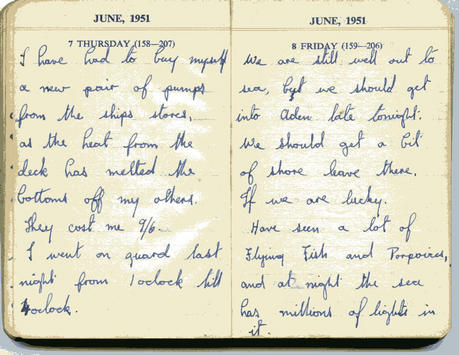 JUNE, 1951
7 THURSDAY (158—207)
I have had to buy myself
a new pair of pumps
from the ships stores,
as the heat from the
deck has melted the
bottoms off my others.
They cost me 9/6.
I went on guard last
night from 1oclock till
4oclock.
JUNE, 1951
8 FRIDAY (159—206)
We are still well out to
sea, but we should get
into Aden late tonight.
We should get a bit
of shore leave there.
If we are lucky.
Have seen a lot of
Flying Fish and Porpoises,
and at night the sea
has millions of lights in
it.